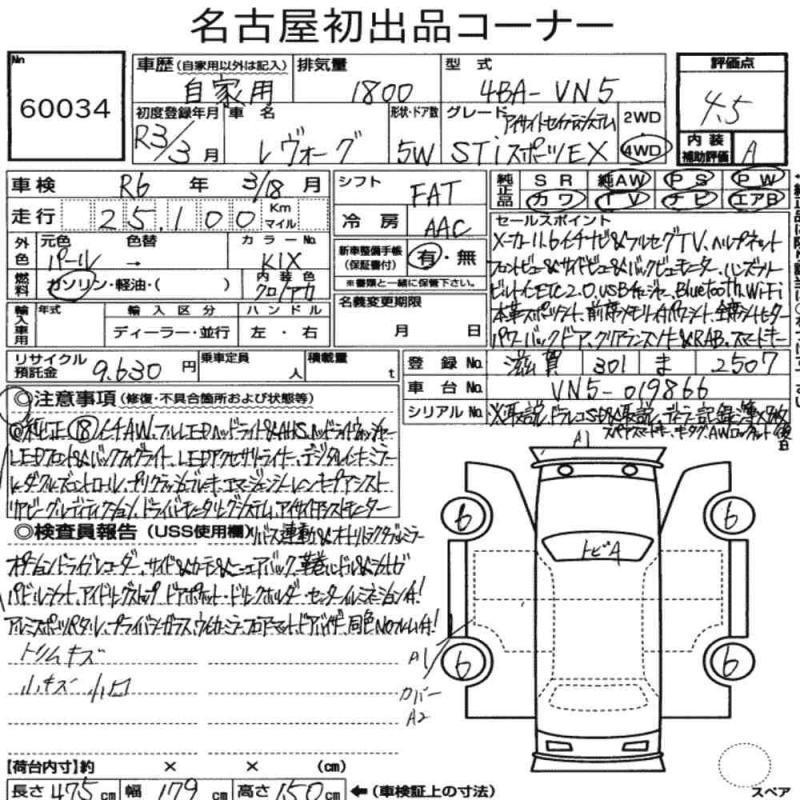 名古屋初出品コーナー
No 60034
車歴 (自家用以外は記入) 自家用
排気量 1800
型式 4BA-VN5
評価点 4.5
初度登録年月 R3/3月
車名 レヴォーグ
形状・ドア数 5W
グレード アイサイトセイフティシステム STiスポーツEX
2WD
4WD
内装補助評価 A
車検 R6年3/18月
シフト FAT
純正品 SR 純AW PS PW
カワ TV ナビ エアB
走行 25,100 Km マイル
冷房 AAC
セールスポイント
メーカー11.6インチナビ&フルセグTV、ヘルプネット
フロントビュー&サイドビュー&バックビューモニター、ハンズフリー
ビルトインETC2.0、USBチャージャー、Bluetooth、Wi-Fi
本革スポーツシート、前席メモリィ付パワーシート、全席シートヒーター
パワーバックドア、クリアランスソナー&RAB、スマートキー
外色 元色 パール 色替 → カラーNo. K1X
新車整備手帳 (保証書付) 有・無
※書類と一緒に保管下さい。
燃料 ガソリン・軽油・( )
内装色 クロ/アカ
名義変更期限 月 日
輸入車用 年式 輸入区分 ディーラー・並行 ハンドル 左・右
リサイクル預託金 9,630円
乗車定員 人
積載量 t
登録No. 滋賀 301 ま 2507
車台No. VN5-019866
シリアルNo. ※取説、ドラレコSD&取説、ディーラー記録簿×2枚
スペアスマートキー、キータグ、AWロックナット後日
◎注意事項 (修復・不具合箇所および状態等)
◎純正18インチAW、フルLEDヘッドライト&AHS、ヘッドライトウォッシャー
LEDフロント&バックフォグライト、LEDアクセサリーライナー、デジタルインナーミラー
レーダークルーズコントロール、プリクラッシュブレーキ、エマージェンシーレーンキープアシスト
リヤビークルディテクション、ドライバーモニタリングシステム、アイサイトアシストモニター
◎検査員報告 (USS使用欄) リバース連動&オートリトラクタブルミラー
オプションドライブレコーダー、サイド&カーテン&ニーエアバック、革巻ハンドル&シフトノブ
パドルシフト、アイドリングストップ、ドアポケット・ドリンクホルダー・センターイルミネーション付!
アルミスポーツペダル、プライバシーガラス、ウインカーミラー、フロアマット、ドアバイザー、同色Noフレーム付!
トリムキズ
小キズ 小凹
A1
トビA
6
6
6
6
A1
カバー
A2
【荷台内寸】約 × × (cm)
長さ 475cm 幅 179cm 高さ 150cm ←(車検証上の寸法)
スペア